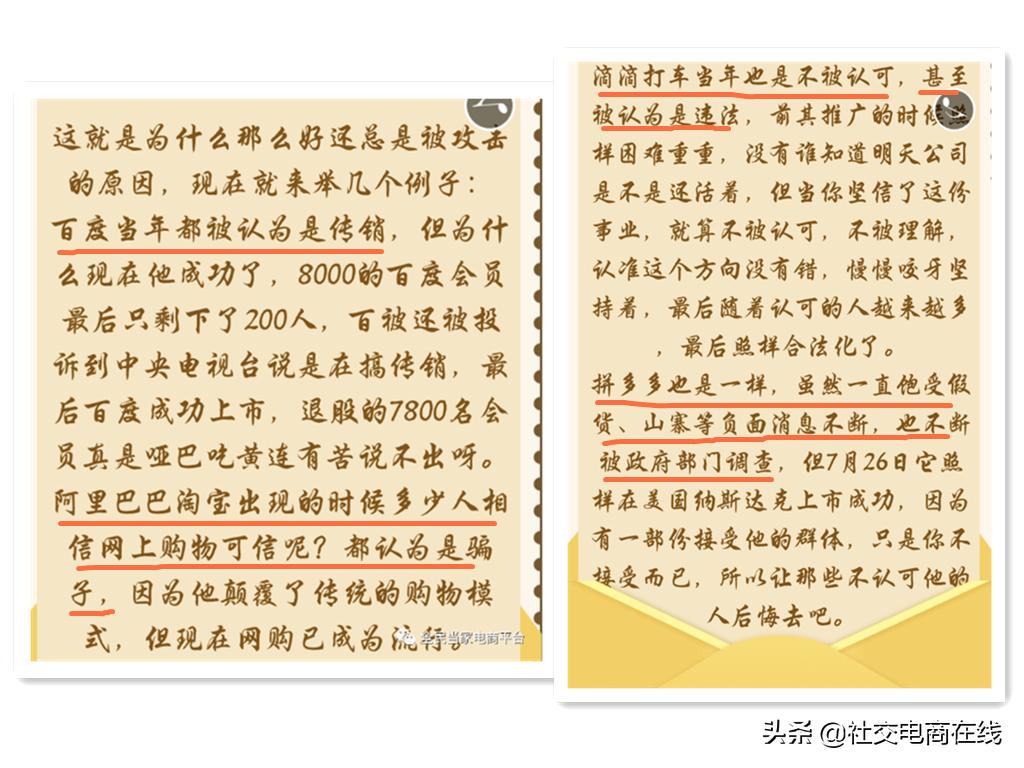 这就是为什么那么好还总是被攻击
的原因，现在就来举几个例子：
百度当年都被认为是传销，但为什
么现在他成功了，8000的百度会员
最后只剩下了200人，百被还被投
诉到中央电视台说是在搞传销，最
后百度成功上市，退股的7800名会
员真是哑巴吃黄连有苦说不出呀。
阿里巴巴淘宝出现的时候多少人相
信网上购物可信呢？都认为是骗
子，因为他颠覆了传统的购物模
式，但现在网购已成为流行。
全民当家电商平台
滴滴打车当年也是不被认可，甚至
被认为是违法，前其推广的时候照
样困难重重，没有谁知道明天公司
是不是还活着，但当你坚信了这份
事业，就算不被认可，不被理解，
认准这个方向没有错，慢慢咬牙坚
持着，最后随着认可的人越来越多
，最后照样合法化了。
拼多多也是一样，虽然一直饱受假
货、山寨等负面消息不断，也不断
被政府部门调查，但7月26日它照
样在美国纳斯达克上市成功，因为
有一部份接受他的群体，只是你不
接受而已，所以让那些不认可他的
人后悔去吧。
头条 @社交电商在线